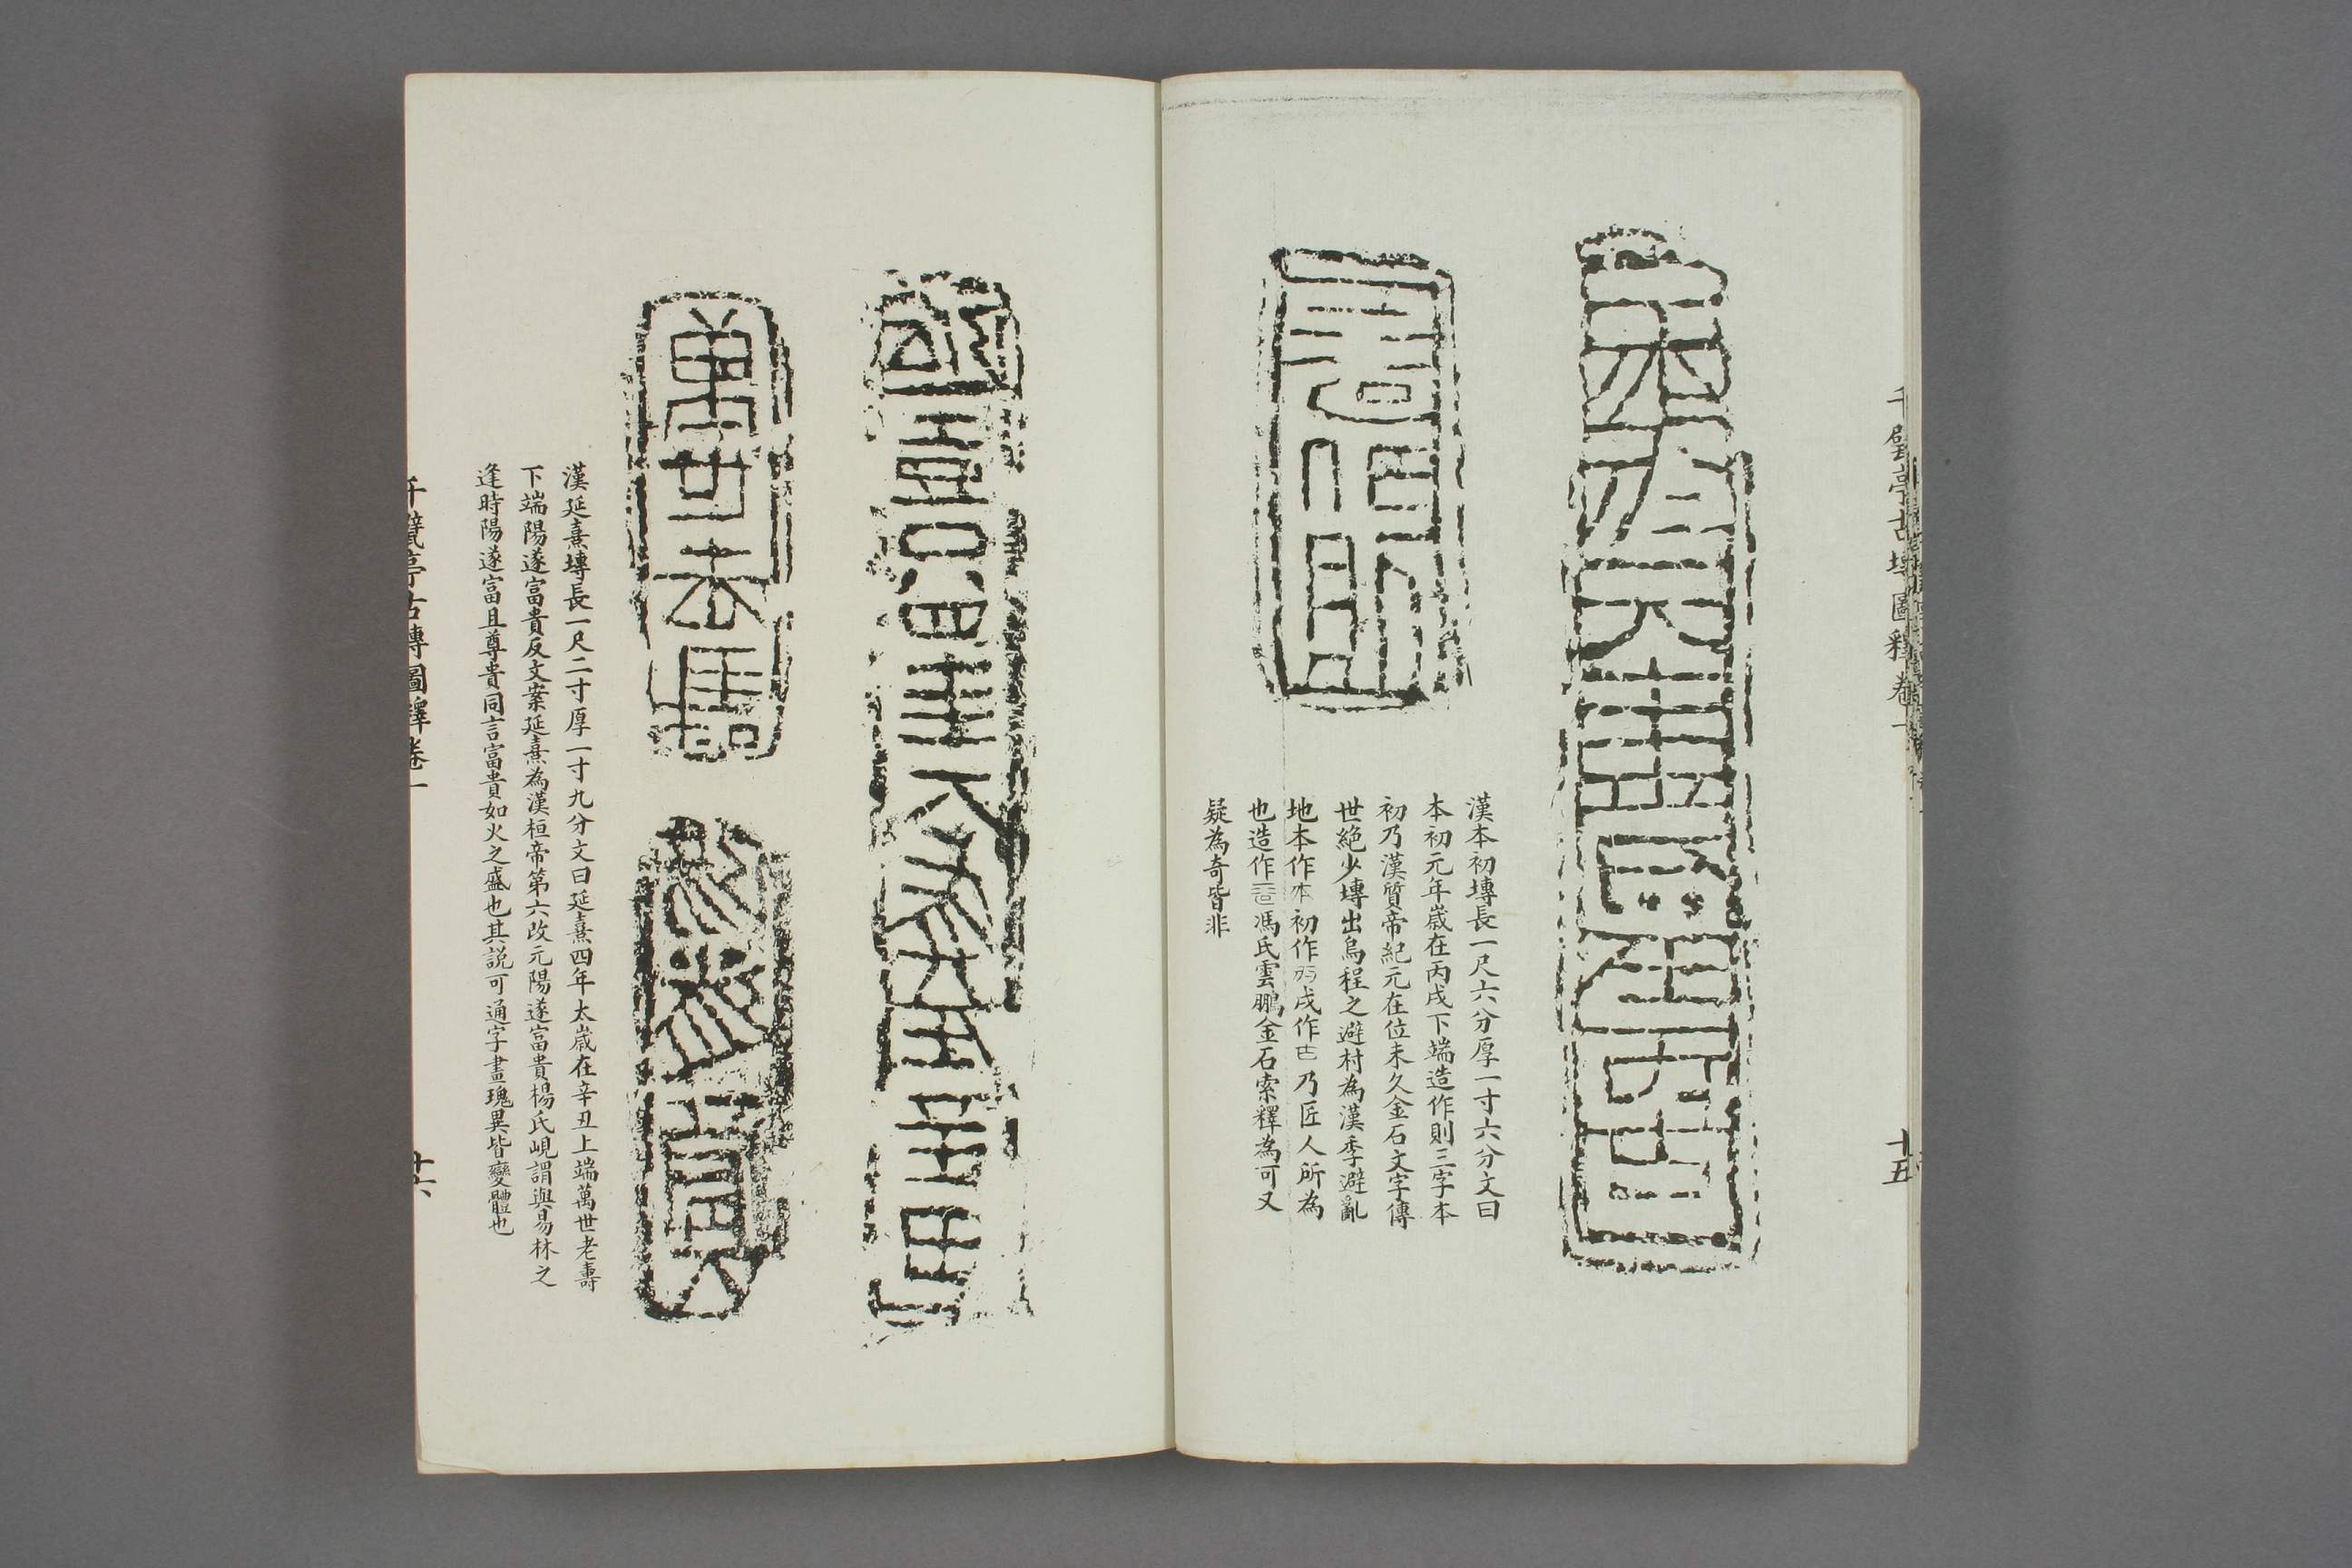 千甓亭古塼圖釋卷一
十五
漢本初塼長一尺六分厚一寸六分文曰
本初元年歲在丙戌下端造作則三字本
初乃漢質帝紀元在位未久金石文字傳
世絕少塼出烏程之避村為漢季避亂
地本作 初作 戌作 乃匠人所為
也造作 馮氏雲鵬金石索釋為可又
疑為奇皆非
萬世老壽
漢延熹塼長一尺二寸厚一寸九分文曰延熹四年太歲在辛丑上端萬世老壽
下端陽遂富貴反文案延熹為漢桓帝第六改元陽遂富貴楊氏峴謂與易林之
逢時陽遂富且尊貴同言富貴如火之盛也其說可通字畫瑰異皆變體也
千甓亭古塼圖釋卷一
十六